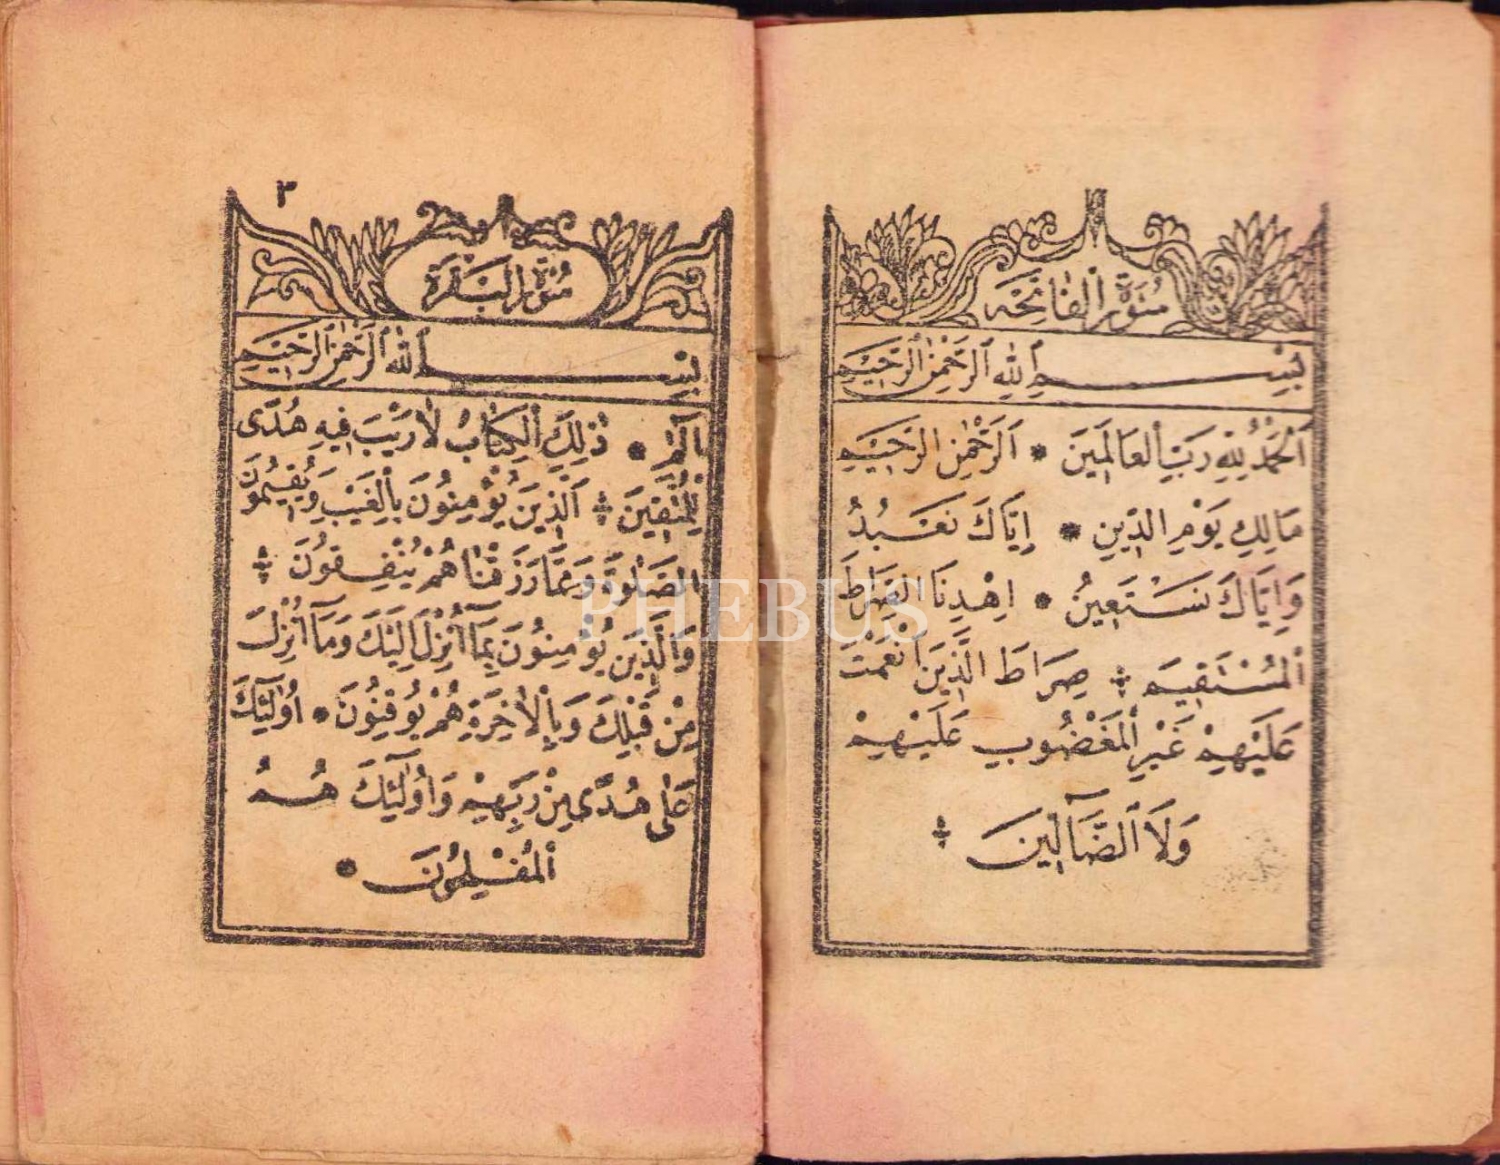 سُورَةُ الْفَاتِحَه
بِسْمِ اللهِ الرَّحْمٰنِ الرَّحِيمِ
اَلْحَمْدُ لِلّٰهِ رَبِّ الْعَالَمِينَ * اَلرَّحْمٰنِ الرَّحِيمِ
مَالِكِ يَوْمِ الدِّينِ * اِيَّاكَ نَعْبُدُ
وَاِيَّاكَ نَسْتَعِينُ * اِهْدِنَا الصِّرَاطَ
الْمُسْتَقِيمَ * صِرَاطَ الَّذِينَ اَنْعَمْتَ
عَلَيْهِمْ غَيْرِ الْمَغْضُوبِ عَلَيْهِمْ
وَلَا الضَّآلِّينَ *
٣
سُورَةُ الْبَقَرَة
بِسْمِ اللهِ الرَّحْمٰنِ الرَّحِيمِ
الٓمٓ * ذٰلِكَ الْكِتَابُ لَا رَيْبَ فِيهِ هُدًى
لِلْمُتَّقِينَ * اَلَّذِينَ يُؤْمِنُونَ بِالْغَيْبِ وَيُقِيمُونَ
الصَّلٰوةَ وَمِمَّا رَزَقْنَاهُمْ يُنْفِقُونَ *
وَالَّذِينَ يُؤْمِنُونَ بِمَآ اُنْزِلَ اِلَيْكَ وَمَآ اُنْزِلَ
مِنْ قَبْلِكَ وَبِالْاٰخِرَةِ هُمْ يُوقِنُونَ * اُولٰٓئِكَ
عَلٰى هُدًى مِنْ رَبِّهِمْ وَاُولٰٓئِكَ هُمُ
الْمُفْلِحُونَ *
PHEBUS